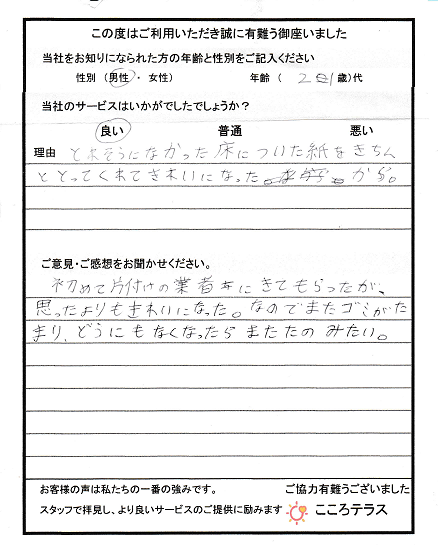 この度はご利用いただき誠に有難う御座いました
当社をお知りになられた方の年齢と性別をご記入ください
性別 (男性 ・ 女性) 年齢 ( 2 歳)代
当社のサービスはいかがでしたでしょうか?
良い 普通 悪い
理由 とれそうになかった床についた紙をきちん
ととってくれてきれいになった。から。
ご意見・ご感想をお聞かせください。
初めて片付けの業者にきてもらったが、
思ったよりもきれいになった。なのでまたゴミがた
まり、どうにもなくなったらまたたのみたい。
お客様の声は私たちの一番の強みです。 ご協力有難うございました
スタッフで拝見し、より良いサービスのご提供に励みます こころテラス